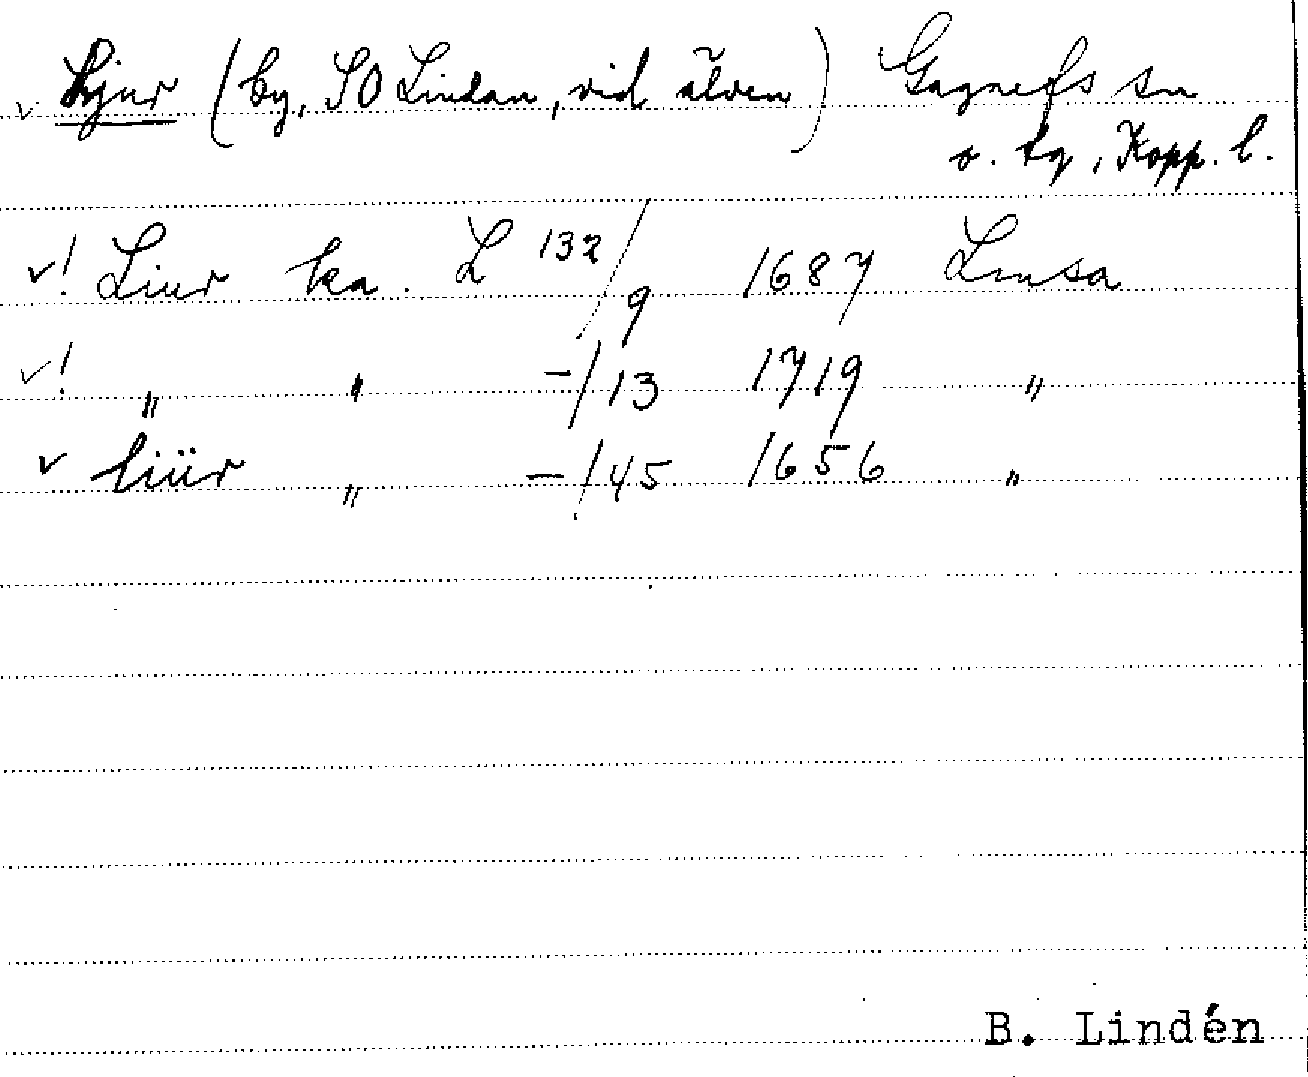 v Ljur (by, SO Lindan, vid älven) Gagnefs sn
o. tg, Kopp. l.
v! Liur ka. L 132/9 1687 Lmsa
v! " " -/13 1719 "
v Liür " -/45 1656 "
B. Lindén